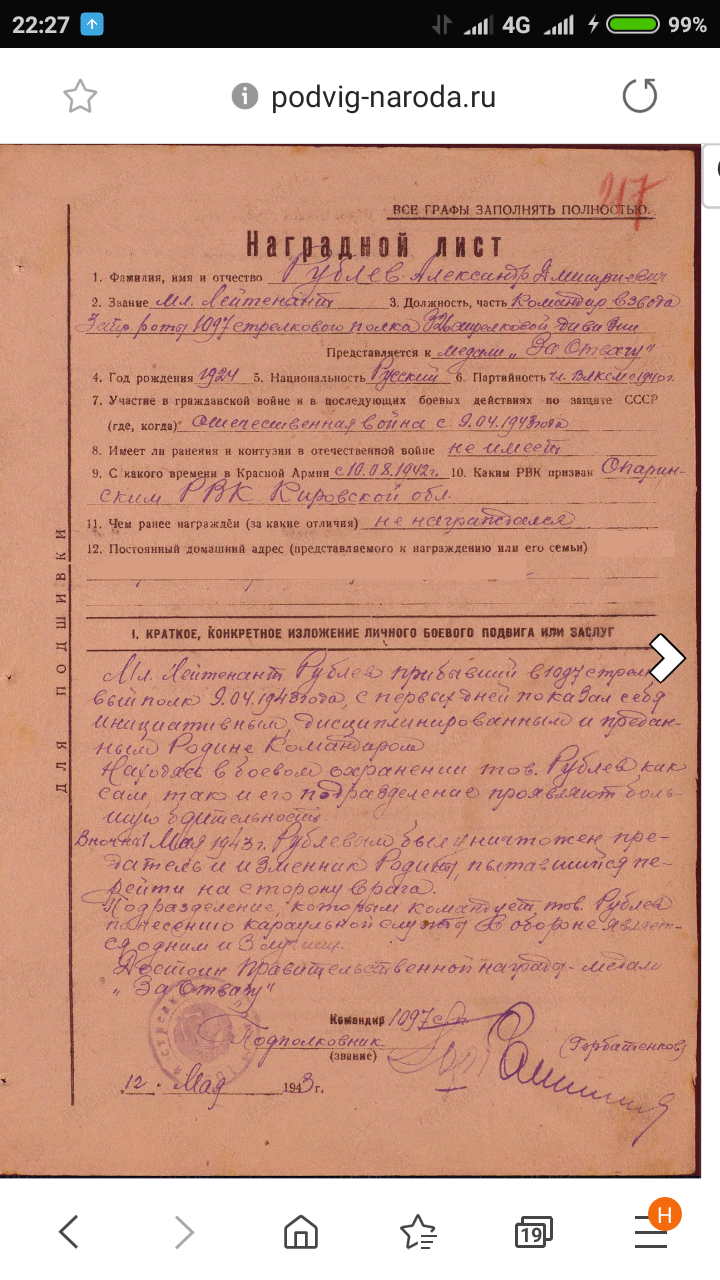 22:27 4G 99%
podvig-naroda.ru
217
ВСЕ ГРАФЫ ЗАПОЛНЯТЬ ПОЛНОСТЬЮ.
Наградной лист
1. Фамилия, имя и отчество Рублев Александр Дмитриевич
2. Звание мл. Лейтенант 3. Должность, часть Командир взвода
1097 стрелкового полка 326 стрелковой дивизии
Представляется к медали „За Отвагу"
4. Год рождения 1924 5. Национальность Русский 6. Партийность чл. ВЛКСМ с 1940 г.
7. Участие в гражданской войне и в последующих боевых действиях по защите СССР
(где, когда) отечественная война с 9.04.1943 года
8. Имеет ли ранения и контузии в отечественной войне не имеет
9. С какого времени в Красной Армии с 10.08.1942 г. 10. Каким РВК призван Опарин-
ским РВК Кировской обл.
11. Чем ранее награждён (за какие отличия) не награждался
12. Постоянный домашний адрес (представляемого к награждению или его семьи)
ДЛЯ ПОДШИВКИ
I. КРАТКОЕ, КОНКРЕТНОЕ ИЗЛОЖЕНИЕ ЛИЧНОГО БОЕВОГО ПОДВИГА ИЛИ ЗАСЛУГ
Мл. Лейтенант Рублев прибывший в 1097 стрелко
вый полк 9.04.1943 года, с первых дней показал себя
инициативным, дисциплинированным и предан-
ным Родине Командиром
Находясь в боевом охранении тов. Рублев как
сам, так и его подразделение проявляют боль-
шую бдительность.
В ночь на 1 Мая 1943 г. Рублевым был уничтожен пре-
датель и изменник Родины, пытавшийся пе-
рейти на сторону врага.
Подразделение, которым командует тов. Рублев
по несению караульной службы в обороне являет-
ся одним из лучших.
Достоин Правительственной награды - медали
„За Отвагу"
Командир 1097 сп
Подполковник
(звание)
(Горбатенков)
„12" Мая 1943 г.
19
Н